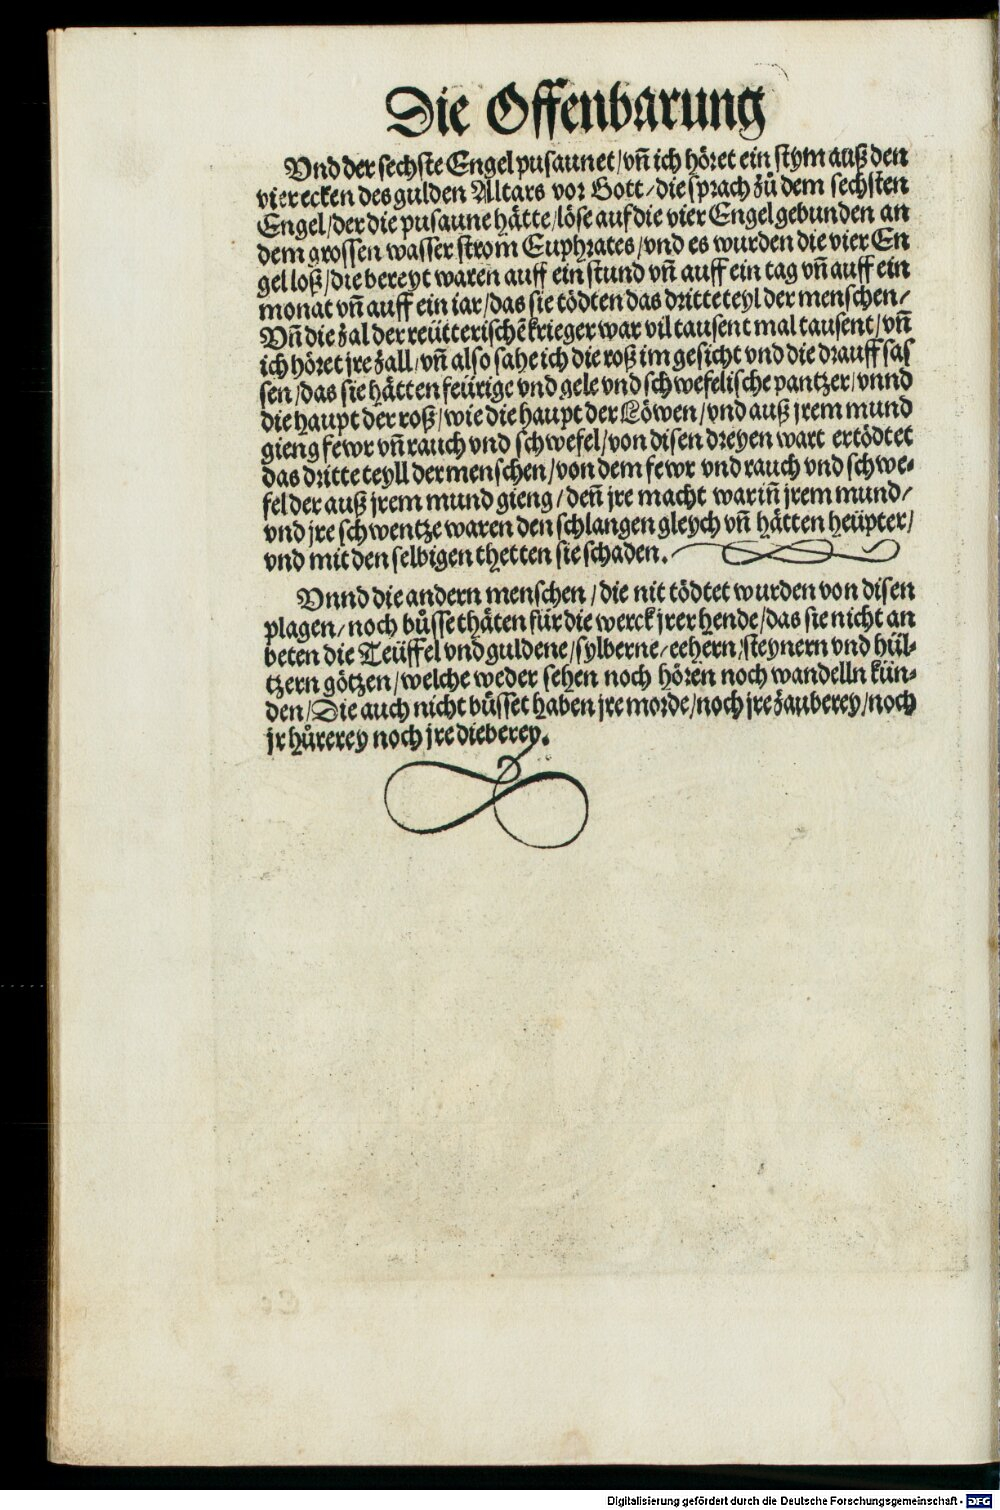 Die Offenbarung
Vnd der sechste Engel pusaunet/vñ ich höret ein stym auß den
vier ecken des gulden Altars vor Gott/die sprach zů dem sechsten
Engel/der die pusaune hätte/löse auf die vier Engel gebunden an
dem grossen wasser strom Euphrates/vnd es wurden die vier En
gel loß/die bereyt waren auff ein stund vñ auff ein tag vñ auff ein
monat vñ auff ein iar/das sie tödten das dritte teyl der menschen/
Vñ die zal der reütterischẽ krieger war vil tausent mal tausent/vñ
ich höret jre zall/vñ also sahe ich die roß im gesicht vnd die drauff sas
sen/das sie hätten feürige vnd gele vnd schwefelische pantzer/vnnd
die haupt der roß/wie die haupt der Löwen/vnd auß jrem mund
gieng fewr vñ rauch vnd schwefel/von disen dreyen wart ertödtet
das dritte teyll der menschen/von dem fewr vnd rauch vnd schwe-
fel der auß jrem mund gieng/deñ jre macht war iñ jrem mund/
vnd jre schwentze waren den schlangen gleych vñ hätten heüpter/
vnd mit den selbigen thetten sie schaden.
Vnnd die andern menschen/die nit tödtet wurden von disen
plagen/noch bůsse thäten für die werck jrer hende/das sie nicht an
beten die Teüffel vnd guldene/sylberne/eehern/steynern vnd hül-
tzern götzen/welche weder sehen noch hören noch wandelln kün-
den/Die auch nicht bůsset haben jre morde/noch jre zauberey/noch
jr hůrerey noch jre dieberey.
Digitalisierung gefördert durch die Deutsche Forschungsgemeinschaft - DFG